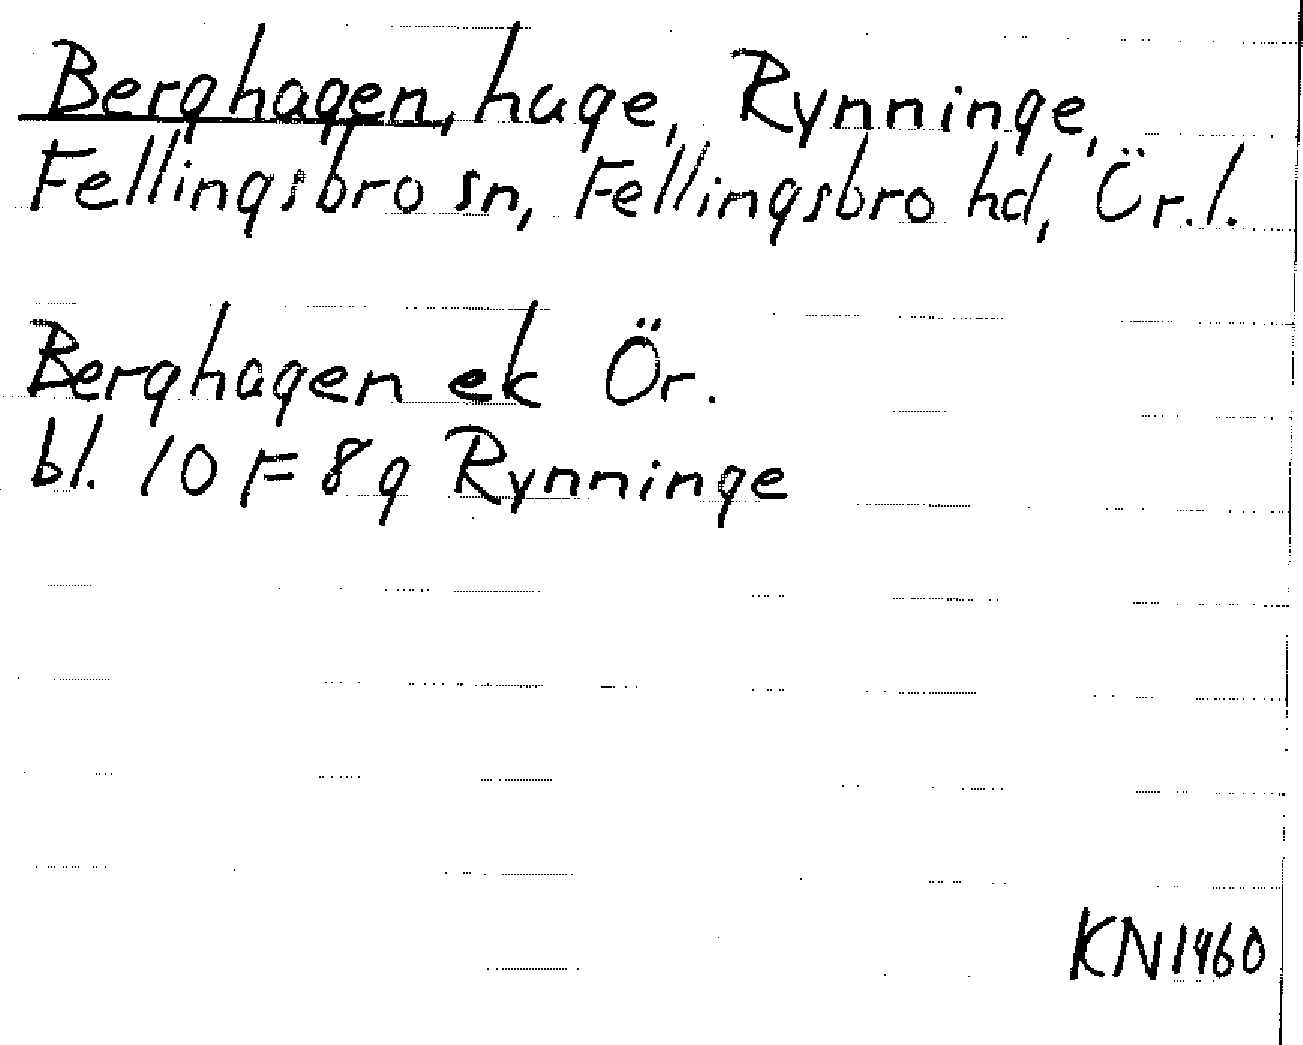 Berghagen, hage, Rynninge,
Fellingsbro sn, Fellingsbro hd, Ör.l.
Berghagen ek Ör.
bl. 10 F 8 g Rynninge
KN 1960